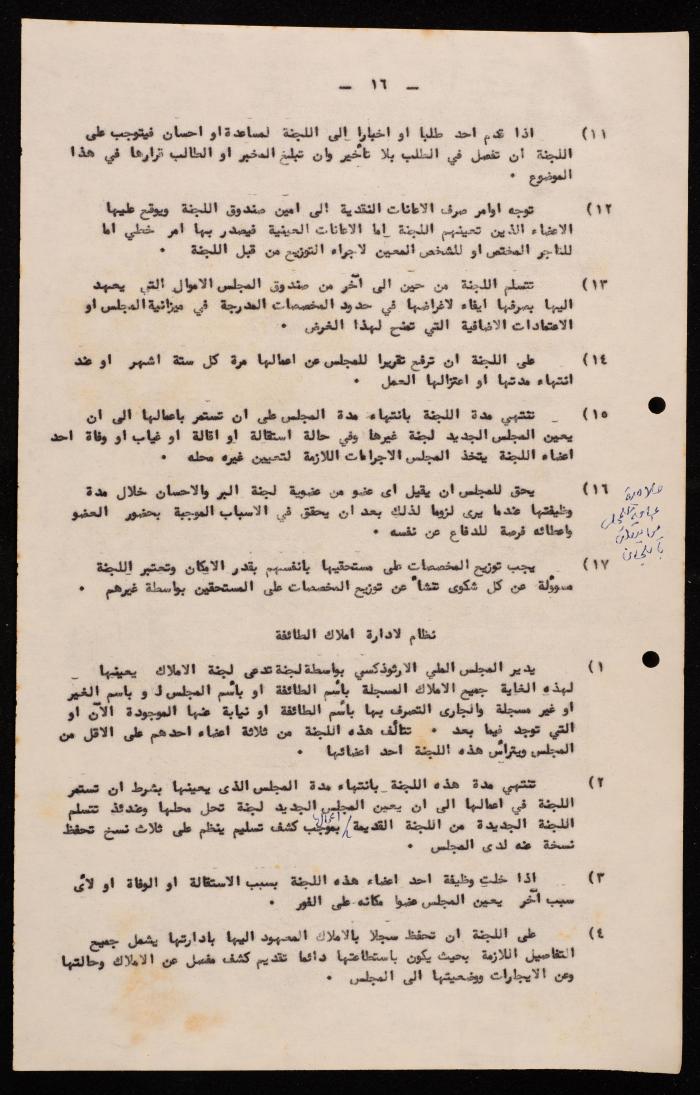 — ١٦ —
١١) اذا قدم احد طلبا او اخبارا إلى اللجنة لمساعدة او احسان فيتوجب على
اللجنة أن تفصل في الطلب بلا تأخير وان تبلغ المخبر او الطالب قرارها في هذا
الموضوع .
١٢) توجه اوامر صرف الاعانات النقدية الى امين صندوق اللجنة ويوقع عليها
الاعضاء الذين تعينهم اللجنة اما الاعانات العينية فيصدر بها امر خطي اما
للتاجر المختص او للشخص المعين لاجراء التوزيع من قبل اللجنة .
١٣) تتسلم اللجنة من حين الى آخر من صندوق المجلس الاموال التي يعهد
اليها بصرفها ايفاء لاغراضها في حدود المخصصات المدرجة في ميزانية المجلس او
الاعتمادات الاضافية التي تمنح لهذا الغرض .
١٤) على اللجنة ان ترفع تقريرا للمجلس عن اعمالها مرة كل ستة اشهر او عند
انتهاء مدتها او اعتزالها العمل .
١٥) تنتهي مدة اللجنة بانتهاء مدة المجلس على ان تستمر باعمالها الى ان
يعين المجلس الجديد لجنة غيرها وفي حالة استقالة او اقالة او غياب او وفاة احد
اعضاء اللجنة يتخذ المجلس الاجراءات اللازمة لتعيين غيره محله .
١٦) يحق للمجلس ان يقيل اى عضو من عضوية لجنة البر والاحسان خلال مدة
وظيفتها عندما يرى لزوما لذلك بعد ان يحقق في الاسباب الموجبة بحضور العضو
واعطائه فرصة للدفاع عن نفسه .
١٧) يجب توزيع المخصصات على مستحقيها بانفسهم بقدر الامكان وتعتبر اللجنة
مسوولة عن كل شكوى تنشأ عن توزيع المخصصات على المستحقين بواسطة غيرهم .
نظام لادارة املاك الطائفة
١) يدير المجلس الملي الارثوذكسي بواسطة لجنة تدعى لجنة الاملاك يعينها
لهذه الغاية جميع الاملاك المسجلة باسم الطائفة او باسم المجلس او باسم الغير
او غير مسجلة والجارى التصرف بها باسم الطائفة او نيابة عنها الموجودة الآن او
التي توجد فيما بعد . تتألف هذه اللجنة من ثلاثة اعضاء احدهم على الاقل من
المجلس ويترأس هذه اللجنة احد اعضائها .
٢) تنتهي مدة هذه اللجنة بانتهاء مدة المجلس الذى يعينها بشرط ان تستمر
اللجنة في اعمالها الى ان يعين المجلس الجديد لجنة تحل محلها وعندئذ تتسلم
اللجنة الجديدة من اللجنة القديمة اعمالها بموجب كشف تسليم ينظم على ثلاث نسخ تحفظ
نسخة عنه لدى المجلس .
٣) اذا خلت وظيفة احد اعضاء هذه اللجنة بسبب الاستقالة او الوفاة او لأى
سبب آخر يعين المجلس عضوا مكانه على الفور .
٤) على اللجنة ان تحفظ سجلا بالاملاك المعهود اليها بادارتها يشمل جميع
التفاصيل اللازمة بحيث يكون باستطاعتها دائما تقديم كشف مفصل عن الاملاك وحالتها
وعن الايجارات ووضعيتها الى المجلس .